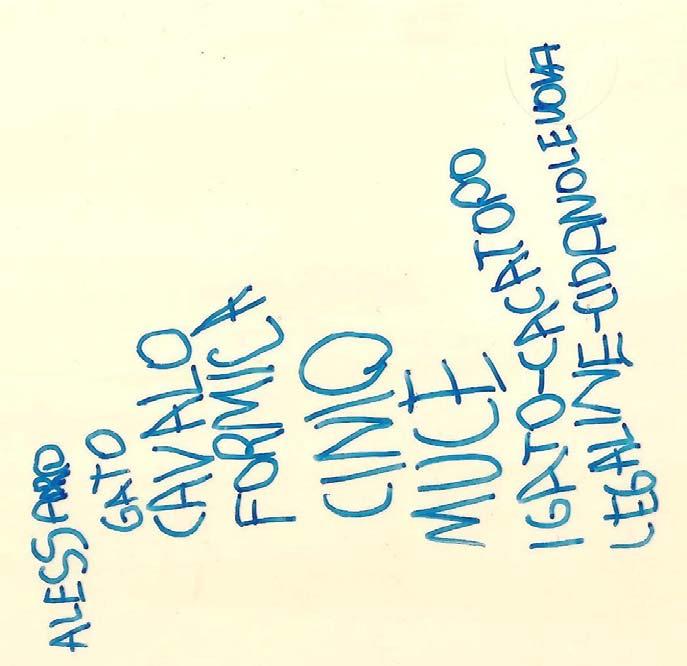 ALESSADRO
GATO
CAVALO
FORMICA
CINIQ
MUCE
IGATO-CACATOPO
LEGALINE-CIDANOLEUOVA